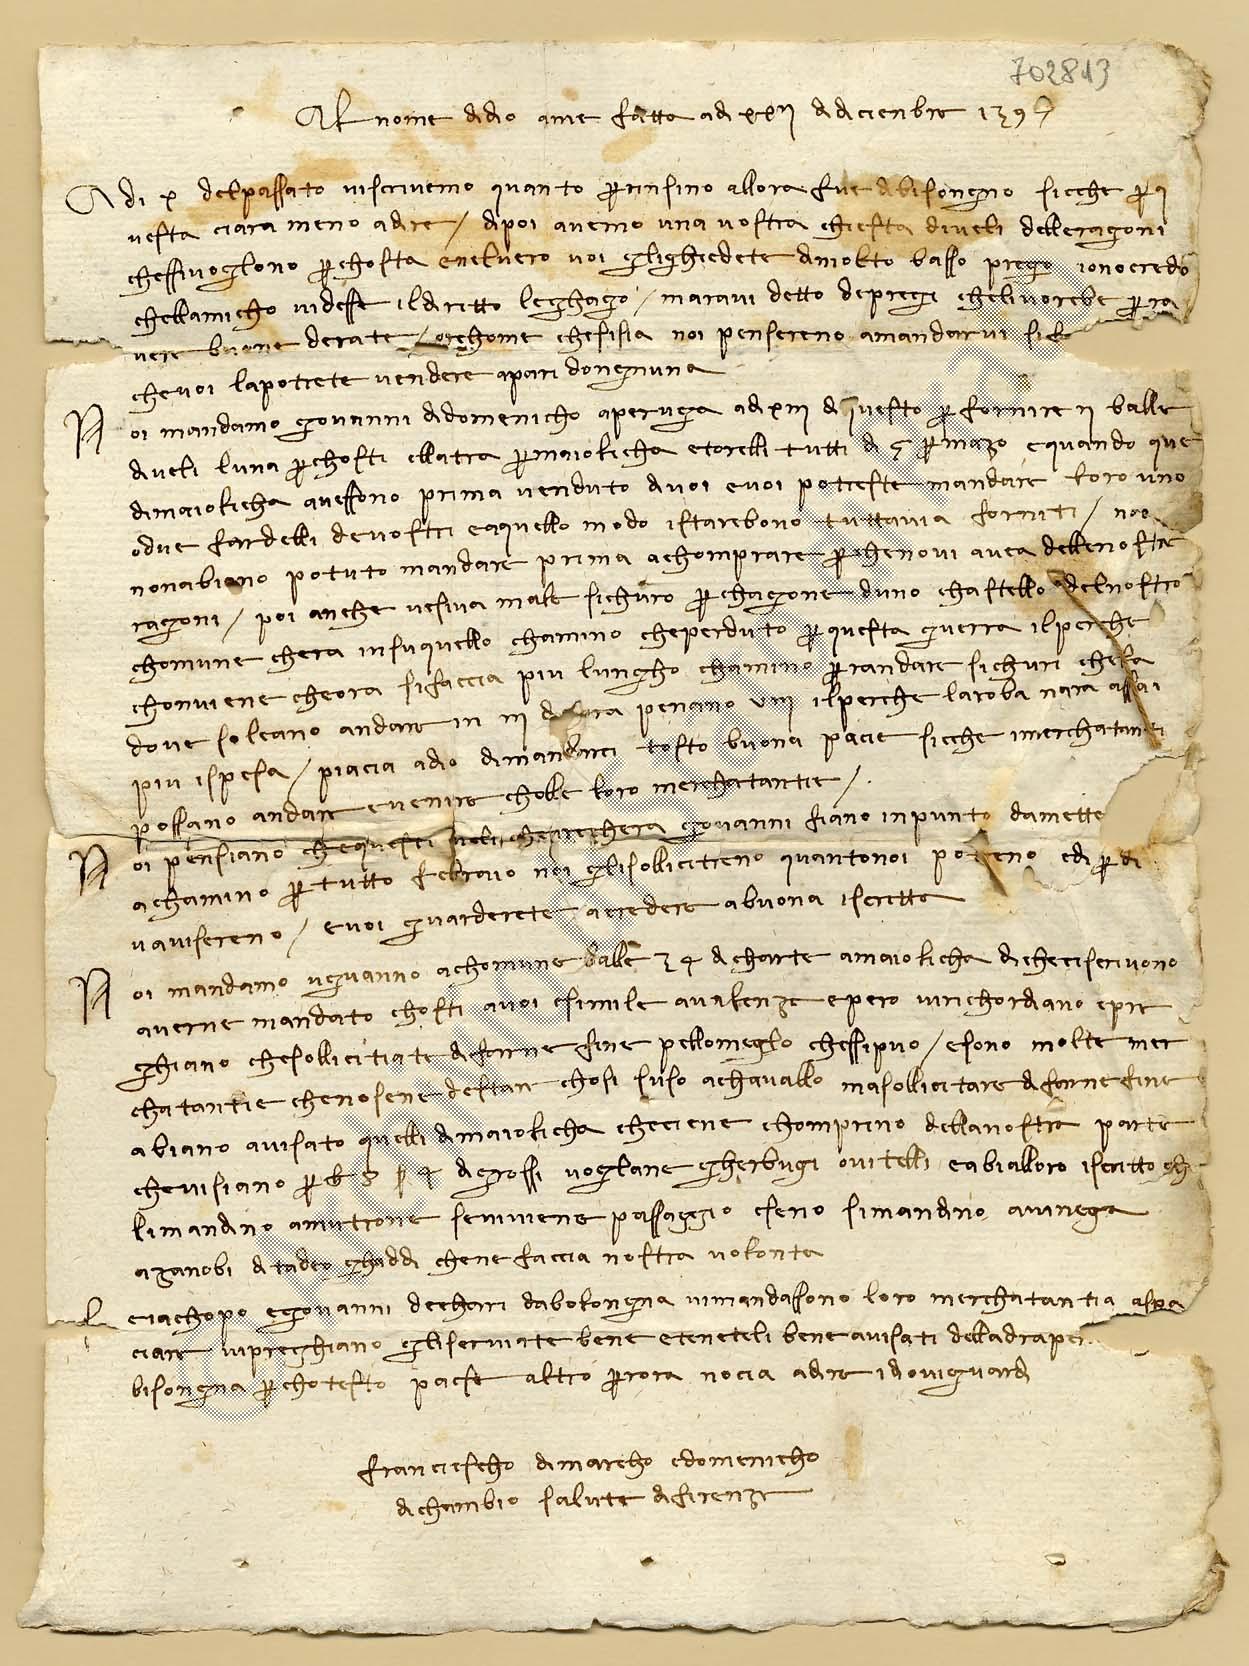 702813
Al nome di dio ame fatta adi xxii di diciembre 1397
A di x del passato vi scrivemo quanto per insino allora fue di bisongno sicche per q
uesta ci ara meno a dire / dipoi avemo una vostra chiesta di veli delle ragoni
chessi voglono per chosta en el vero voi gli chiedete di molto basso prego io no credo
chellamicho videsse il diritto leghago / maravi detto de pregi che li vorebe per ra
vere buone derate / orchome che si sia noi pensereno a mandarvi
che voi la potrete vendere a pari dongnuna
N oi mandamo govanni di domenicho a peruga adi xiii di questo per fornire ii balle
di veli luna per chosti ellatra per maiolicha e torelli tutti di per mazo e quando que
di maiolicha avessono prima venduto di voi e voi potreste mandare loro uno
o due fardelli de vostri e a quello modo istarebono tuttavia forniti / noi
non abiano potuto mandare prima a chomprare per che no vi avea delle nostre
ragoni / poi anche ve si va male sichuro per chagone duno chastello del nostro
chomune chera in su quello chamino che perduto per questa guerra il perche
chonviene che ora si faccia piu lungho chamino per randare sichuri che la
dove soleano andare in iii di ora penano viii il perche la roba nara assai
piu ispesa / piacia a dio di mandarci tosto buona pacie sicche i merchatanti
possano andare e venire cholle loro merchatantie /.
N oi pensiano che questi veli che rechera govanni fiano in punto da mette
a chamino per tutto febraio noi gli solliciteeno quanto noi potreno e di per di
v avisereno / e voi guarderete a credere a buona iscritta
N oi mandamo uguanno a chomune balle 34 di charte a maiolicha di che ci scrivono
averne mandato chosti a voi e simile a valenze e pero vi richordiano e pre
ghiano che sollicitiate di farne fine pello meglo chessi puo / e sono molte mer
chatantie che no se ne de star chosi suso a chavallo ma sollicitare di farne fine
abiano avisato quelli di maiolicha che ci ene chomprino della nostra parte
che vi siano per di grossi voglane gherbugi o vitelli e abialloro iscritto che
li mandino a mutrone se vi viene passaggio e se no li mandino a vinega
a zanobi di tadeo ghaddi che ne faccia nostra volonta
S e iachopo e govanni dechari da bolongna vi mandassono loro merchatantia a spa
ciare vi preghiano gli serviate bene e teneteli bene avisati della draperi
bisongna per chotesto paese altro per ora no ci a a dire idio vi guardi
franciescho di marcho e domenicho
di chambio salute di firenze